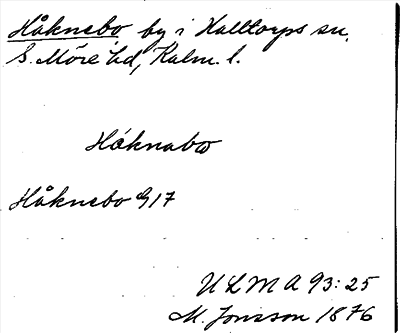 Håknebo by i Halltorps sn.
S. Möre hd, Kalm. l.
Håknabo
Håknebo G17
ULMA 93:25
M. Jonsson 1876